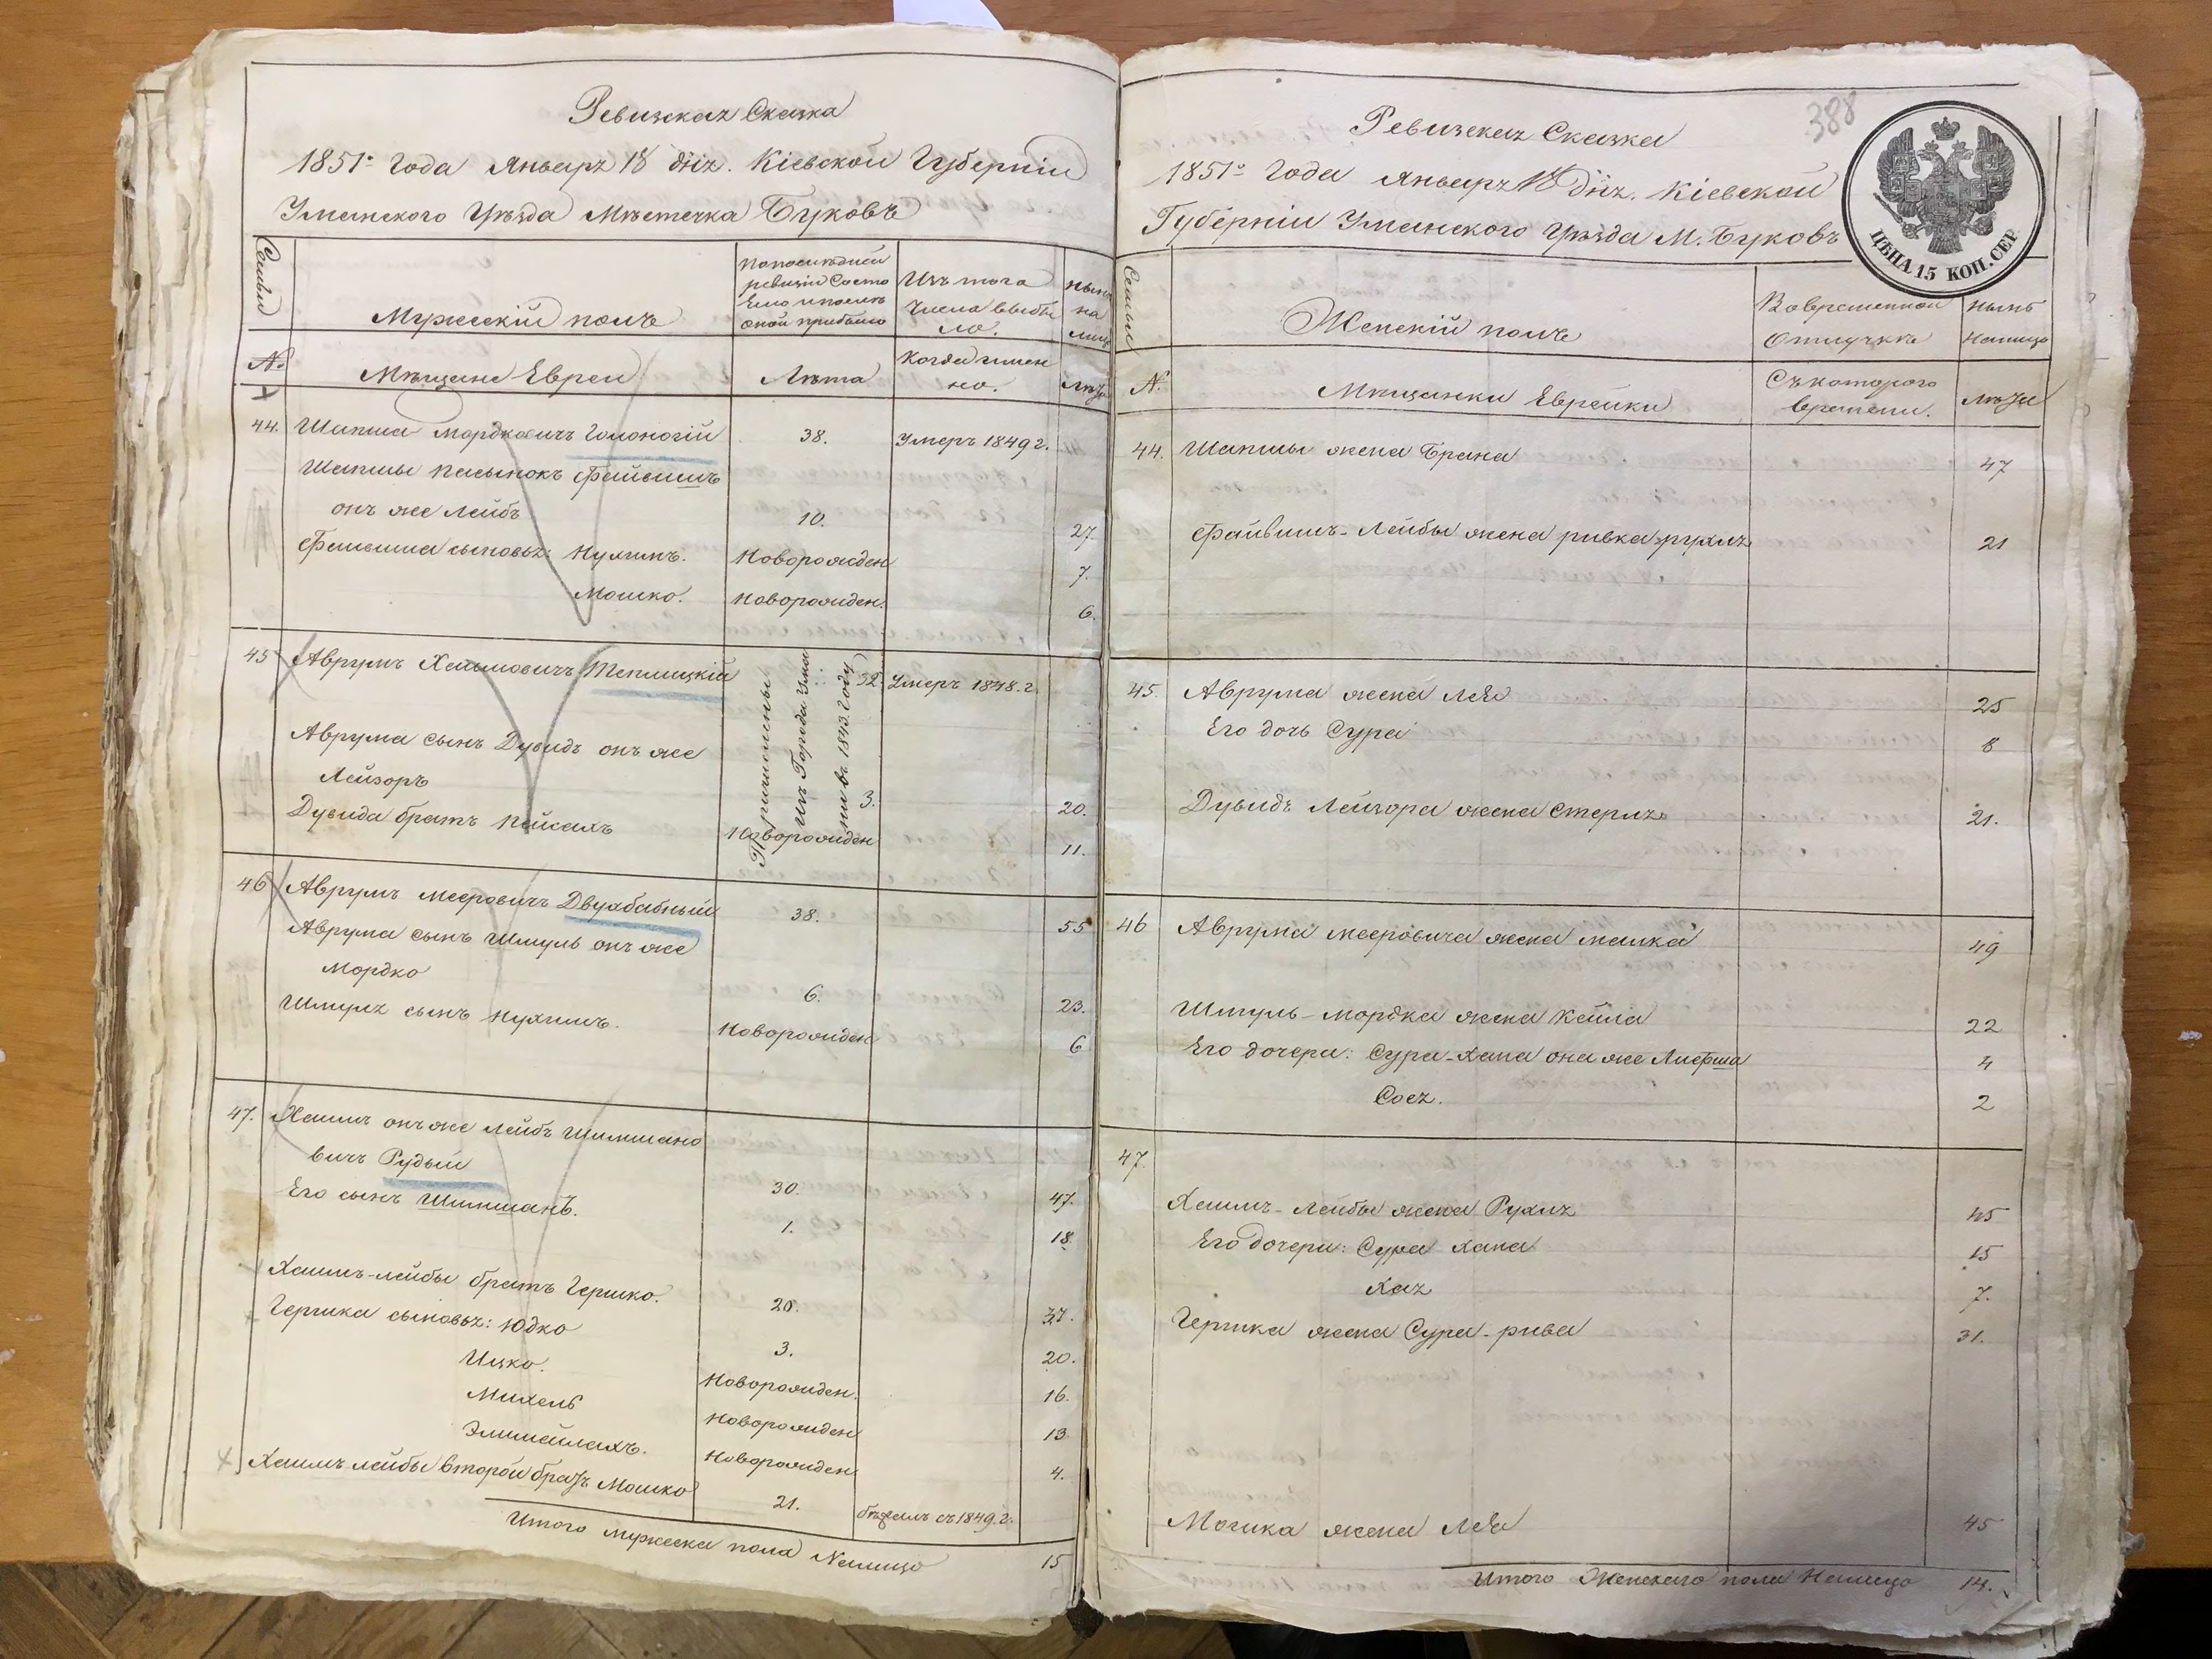 Ревизская Сказка
1851го Года Января 18 дня. Кіевской Губерніи
Уманского Уѣзда Мѣстечка Буковъ
Семьи
Мужескій полъ
По последней ревизіи Состояло и после оной прибыло
Изъ того Числа выбыло.
Нынѣ на лицо
№
Мѣщане Евреи
Лѣта
Когда именно.
Лѣта
44. Шапша Мордковичъ Голоногій 38. Умеръ 1849 г.
Шапшы пасынокъ Файвишъ
онъ же Лейбъ 10. 27.
Файвиша сыновья: Нухимъ. Новорожден 7.
Мошко. Новорожден. 6.
45 Аврумъ Хаимовичъ Теплицкій 32. Умеръ 1848. г.
Причислены
изъ Города Ума
ни въ 1843. Году
Аврума сынъ Дувидъ онъ же
Лейзоръ 3. 20.
Дувида братъ Пейсахъ Новорожден 11.
46 Аврумъ Мееровичъ Двухбабный 38. 55
Аврума сынъ Шмуль онъ же
Мордко 6. 23.
Шмуля сынъ Нухимъ. Новорожден 6
47. Хаимъ онъ же Лейбъ Шимшано
вичъ Рудый 30. 47.
Его сынъ Шимшанъ. 1. 18.
Хаимъ-Лейбы братъ Гершко. 20. 37.
Гершка сыновья: Юдко 3. 20.
Ицко. Новорожден. 16.
Михель Новорожден 13
Элимейлахъ. Новорожден 4.
Хаимъ-Лейбы второй братъ Мошко 21. съ 1849. г.
Итого мужеска пола Налицо 15
388
Ревизская Сказка
1851го Года Января 18 дня. Кіевской
Губерніи Уманского Уѣзда М. Буковъ
ЦѢНА 15 КОП. СЕР.
Семьи
Женскій полъ
Во временной отлучкѣ
Нынѣ Налицо
№.
Мѣщанки Еврейки
Съ которого времени.
Лѣта
44. Шапшы жена Брана 47
Файвишъ-Лейбы жена Ривка-Рухля 21
45. Аврума жена Лея 25
Его дочь Сура 8
Дувидъ Лейзора жена Стерля 21.
46 Аврума Мееровича жена Малка 49
Шмуль-Мордка жена Кейла 22
Его дочери: Сура-Хана она же 4
Сося. 2
47.
Хаимъ-Лейбы жена Рухля 45
Его дочери: Сура Хана 15
Хая 7.
Гершка жена Сура-Рива 31.
Мошка жена Лея 45
Итого Женскаго пола Налицо 14.